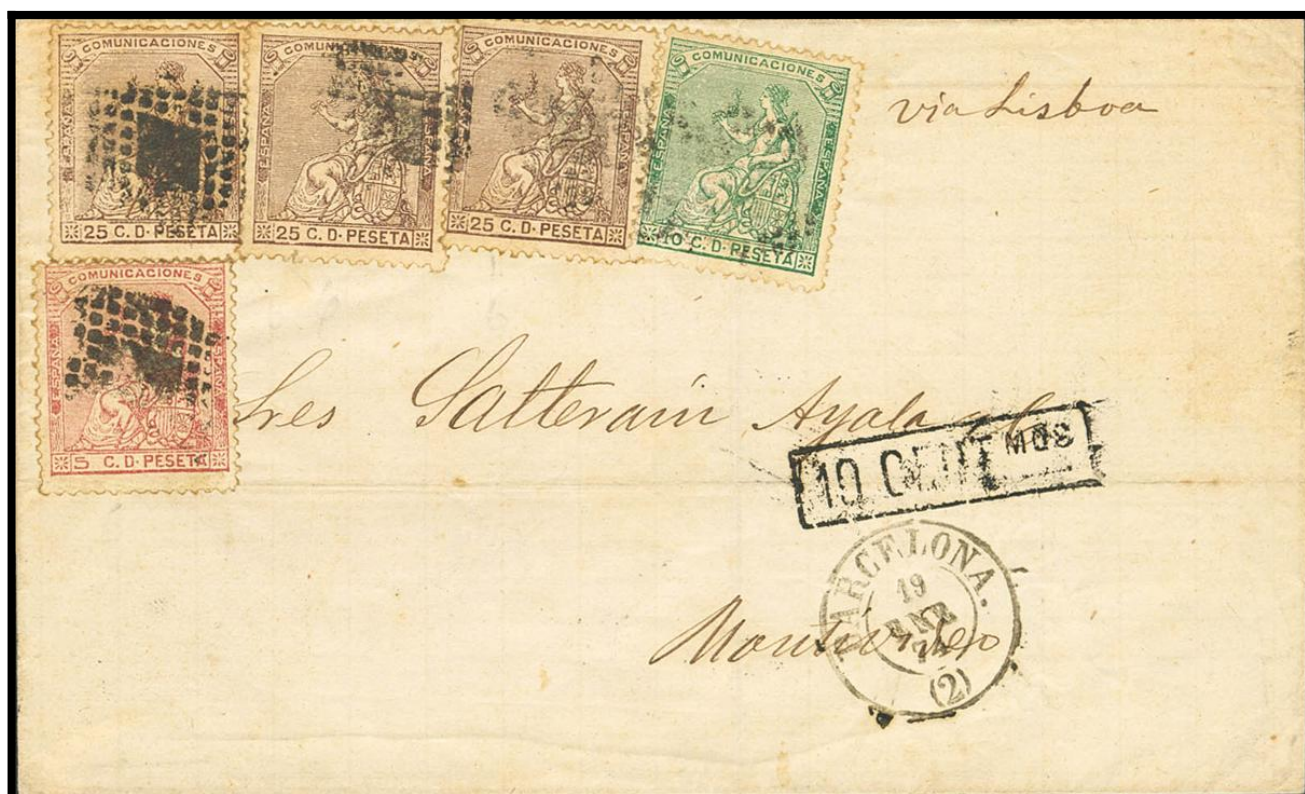 COMUNICACIONES
ESPAÑA ESPAÑA
25 C. D. PESETA
COMUNICACIONES
ESPAÑA ESPAÑA
25 C. D. PESETA
COMUNICACIONES
ESPAÑA ESPAÑA
25 C. D. PESETA
COMUNICACIONES
ESPAÑA ESPAÑA
10 C. D. PESETA
via Lisboa
COMUNICACIONES
ESPAÑA ESPAÑA
5 C. D. PESETA
Sres Satterain Ayala y Ca
10 CENTMOS
BARCELONA.
19
ENE
74
(2)
Montevideo